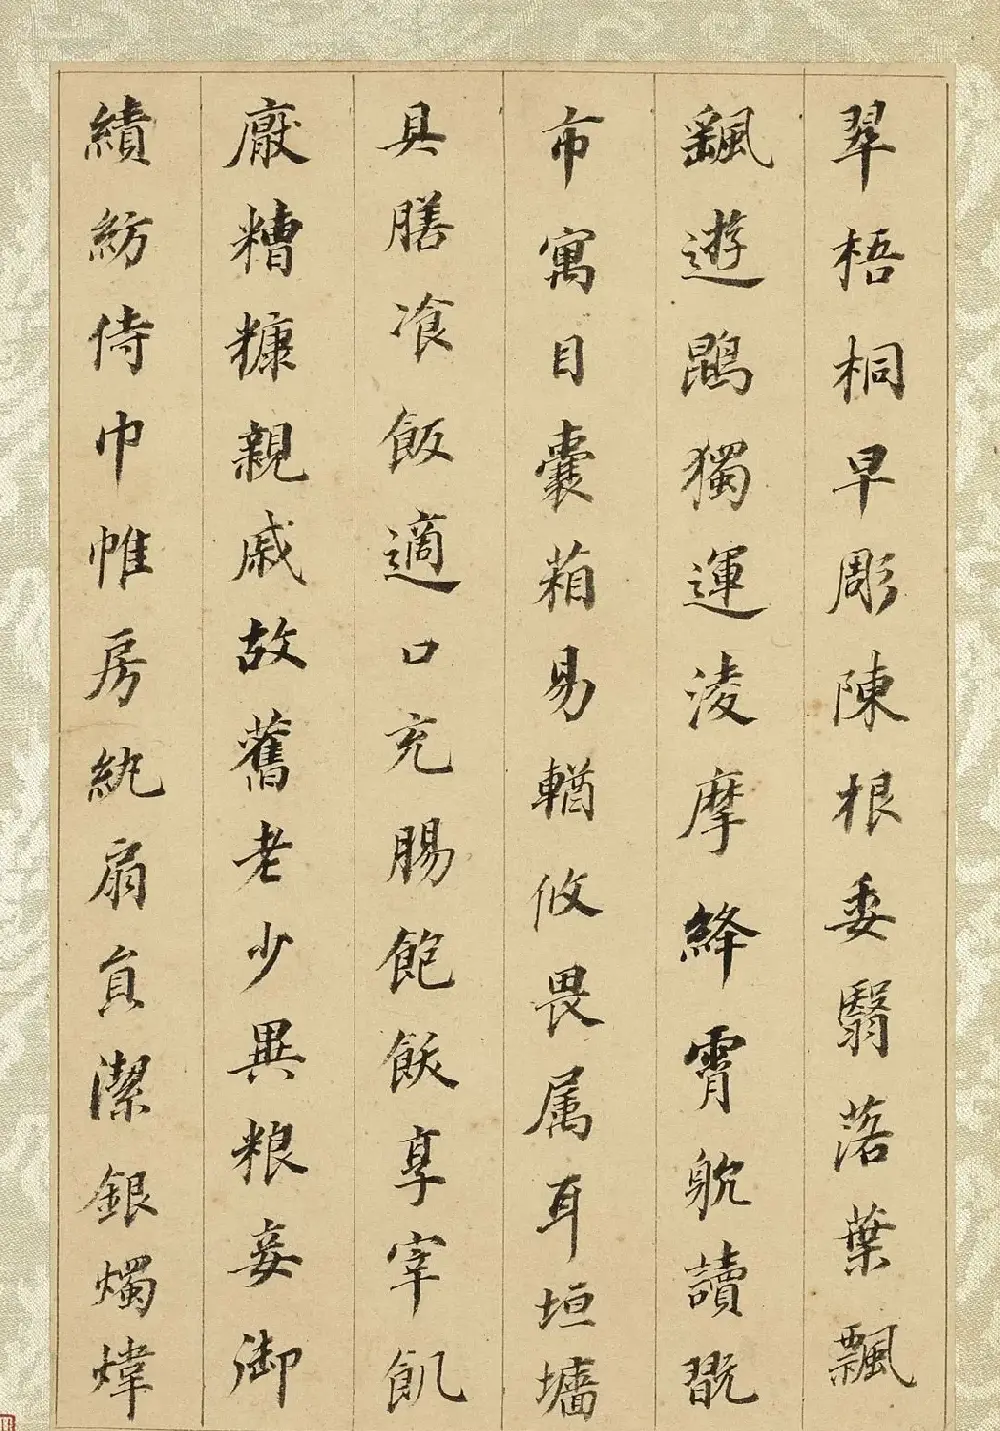 翠梧桐早彫陳根委翳落葉飄
飖遊鵾獨運淩摩絳霄躭讀翫
市寓目囊葙易輶攸畏属耳垣墻
具膳飡飯適口充腸飽飫享宰飢
厭糟糠親戚故舊老少異粮妾御
績紡侍巾帷房紈扇貟潔銀燭煒